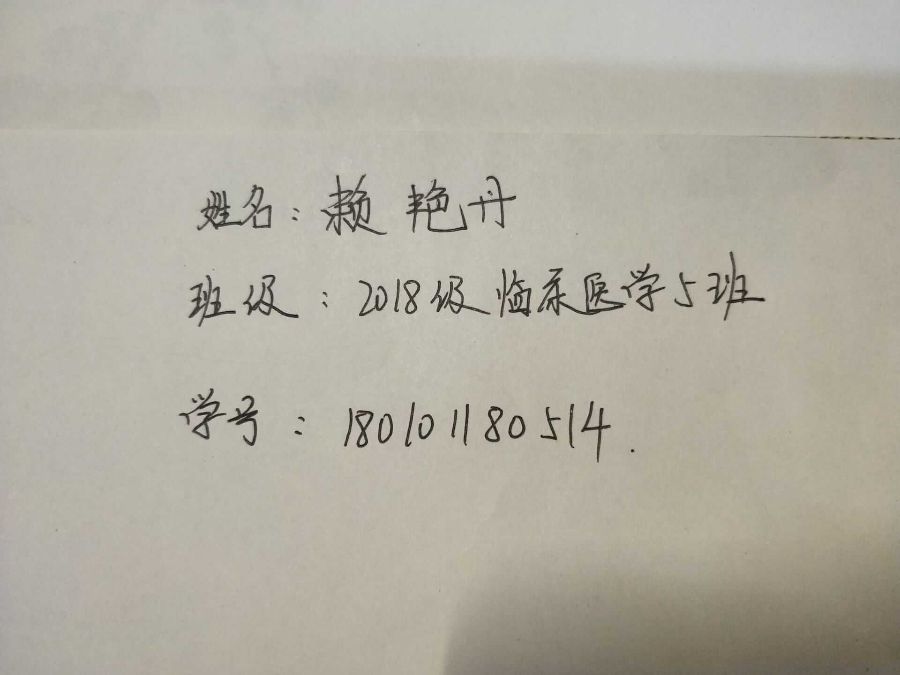 姓名：赖艳丹
班级：2018级临床医学5班
学号：180101180514.